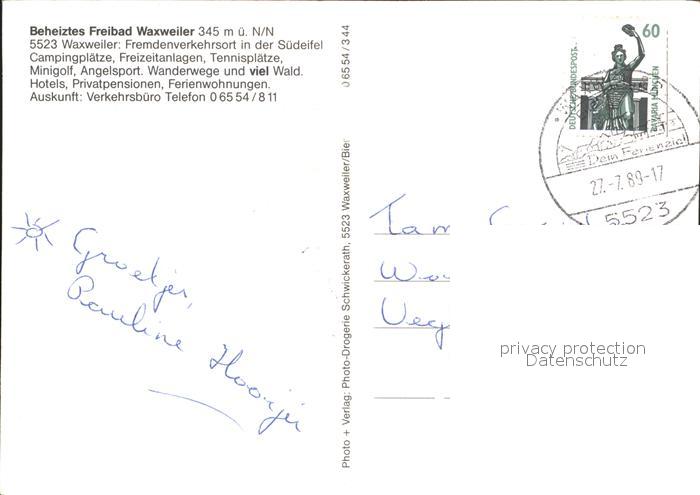 Beheiztes Freibad Waxweiler 345 m ü. N/N
5523 Waxweiler: Fremdenverkehrsort in der Südeifel
Campingplätze, Freizeitanlagen, Tennisplätze,
Minigolf, Angelsport. Wanderwege und viel Wald.
Hotels, Privatpensionen, Ferienwohnungen.
Auskunft: Verkehrsbüro Telefon 0 65 54 / 8 11
Groetjes,
Pauline Hooijer
06554/344
Photo + Verlag: Photo-Drogerie Schwickerath, 5523 Waxweiler/Bier
60
DEUTSCHE BUNDESPOST
BAVARIA MÜNCHEN
Dein Ferienziel
27.-7.89-17
5523
Fam
privacy protection
Datenschutz